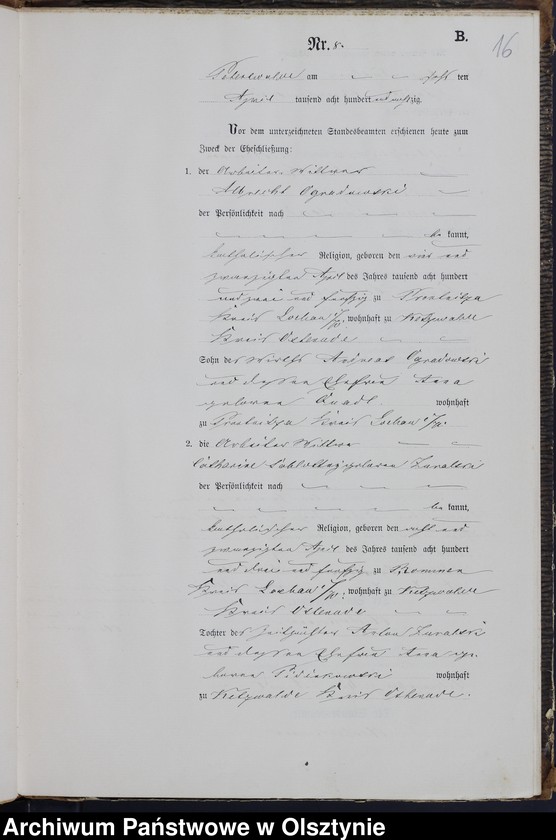 B.
16
Nr. 8.
am fünf ten
April tausend acht hundert und achtzig.
Vor dem unterzeichneten Standesbeamten erschienen heute zum
Zweck der Eheschließung:
1. der Arbeiter Wittwer
Albrecht Ogrodowski
der Persönlichkeit nach
be kannt,
katholischer Religion, geboren den vier und
zwanzigsten April des Jahres tausend acht hundert
und zwei und fünfzig zu
Kreis Loebau W/Pr., wohnhaft zu
Kreis Osterode
Sohn des Wirths Andreas Ogrodowski
und dessen Ehefrau Anna
geborene wohnhaft
zu Kreis Loebau W/Pr.
2. die Arbeiter Wittwe
Catharine geborene Zuralski
der Persönlichkeit nach
be kannt,
katholischer Religion, geboren den acht und
zwanzigsten April des Jahres tausend acht hundert
und drei und fünfzig zu Rommen
Kreis Loebau W/Pr., wohnhaft zu
Kreis Osterode
Tochter des Anton Zuralski
und dessen Ehefrau Anna ge-
borene wohnhaft
zu Kreis Osterode.
Archiwum Państwowe w Olsztynie